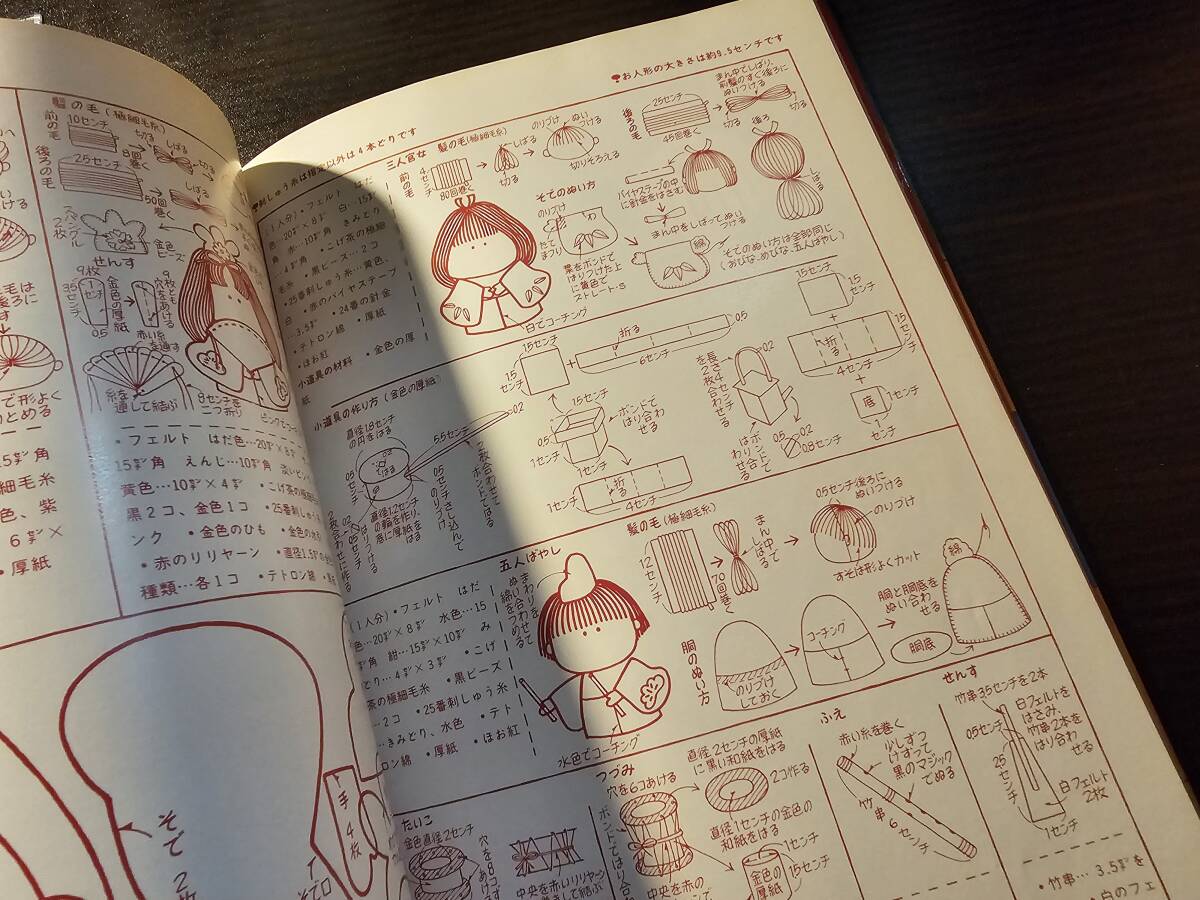 お人形の大きさは約9.5センチです
刺しゅう糸は指定以外は4本どりです
三人官女
髪の毛(極細毛糸)
前の毛
4センチ
80回巻く
しばる
切る
のりづけ
ぬいつける
切りそろえる
後ろの毛
25センチ
45回巻く
まん中でしばり、
前髪のすぐ後ろに
ぬいつける
切る
切る
後ろ
しばる
バイヤステープの中
に針金をはさむ
まん中をしばってぬい
つける
そでのぬい方
のりづけ
たてまつり
葉をボンドで
はりつけた上
に黄色で
ストレート・S
綿
そでのぬい方は全部同じ
(おびな、めびな、五人ばやし)
白でコーチング
(1人分)・フェルト はだ
色…20㌢×8㌢ 白…15㌢
角 赤…10㌢角 きみどり
4㌢角 ・こげ茶の極細
毛糸 ・黒ビーズ…2コ
・25番刺しゅう糸…黄色、
白 ・赤のバイヤステープ
3.5㌢ ・24番の針金
・テトロン綿 ・厚紙
・ほお紅
小道具の材料 ・金色の厚
紙
小道具の作り方(金色の厚紙)
直径1.8センチ
の円をはる
0.2
5.5センチ
0.2
はる
0.5センチ
直径1.2センチ
の輪を作り、
底に厚紙を
はる
0.5センチさし込んで
のりづけ
2枚合わせて
ボンドではる
0.2
0.5センチ
のりづける
2枚合わせに作る
1.5センチ
1.5センチ
折る
0.5
6センチ
1.5センチ
0.5
1センチ
1センチ
ボンドで
はり合わ
せる
折る
1センチ
4センチ
長さ4センチ
を2枚合わせる
0.2
ボンドで
はり合わ
せる
0.5
0.2
0.8センチ
1.5センチ
1.5センチ
折る
4センチ
1.5センチ
底
1センチ
1センチ
五人ばやし
まわりをぬい合わせて
綿をつめる
水色でコーチング
(1人分)・フェルト はだ
色…20㌢×8㌢ 水色…15
㌢角 紺…15㌢×10㌢ み
どり…4㌢×3㌢ ・こげ
茶の極細毛糸 ・黒ビーズ
…2コ ・25番刺しゅう糸
…きみどり、水色 ・テト
ロン綿 ・厚紙 ・ほお紅
髪の毛(極細毛糸)
12センチ
70回巻く
まん中で
しばる
0.5センチ後ろに
ぬいつける
のりづけ
すそは形よくカット
胴のぬい方
のりづけ
しておく
コーチング
胴と胴底を
ぬい合わ
せる
胴底
綿
たいこ
金色直径2センチ
中央を赤いリリヤーン
つづみ
穴を6コあける
直径2センチの厚紙
に黒い和紙をはる
2コ作る
直径1センチの金色の
和紙をはる
1センチ
金色の
厚紙
1.5センチ
中央を赤の
ふえ
赤い糸を巻く
少しずつ
けずって
黒のマジック
でぬる
竹串6センチ
せんす
竹串3.5センチを2本
0.5センチ
白フェルトを
はさみ、
竹串2本を
はり合わ
せる
2.5センチ
白フェルト
2枚
1センチ
・竹串…3.5㌢を
髪の毛(極細毛糸)
前の毛
10センチ
8回巻く
切る
しばる
切る
後ろの毛
25センチ
50回巻く
しばる
切る
スパングル
2枚
金色
ビーズ
せんす
9枚
3.5センチ
1センチ
0.5
金色の厚紙
9枚とも
穴をあける
赤い糸
を通す
糸を
通して結ぶ
8センチを
二つ折り
・フェルト はだ色…20㌢×8㌢
15㌢角 えんじ…10㌢角
黄色…10㌢×4㌢ ・こげ茶の極細
黒2コ、金色1コ ・25番刺しゅう
ンク ・金色のひも
・赤のリリヤーン
種類…各1コ ・テトロン綿
で形よく
とめる
15㌢角
細毛糸
色、紫
6㌢×
・厚紙
そで
2枚
手
4枚
そで口